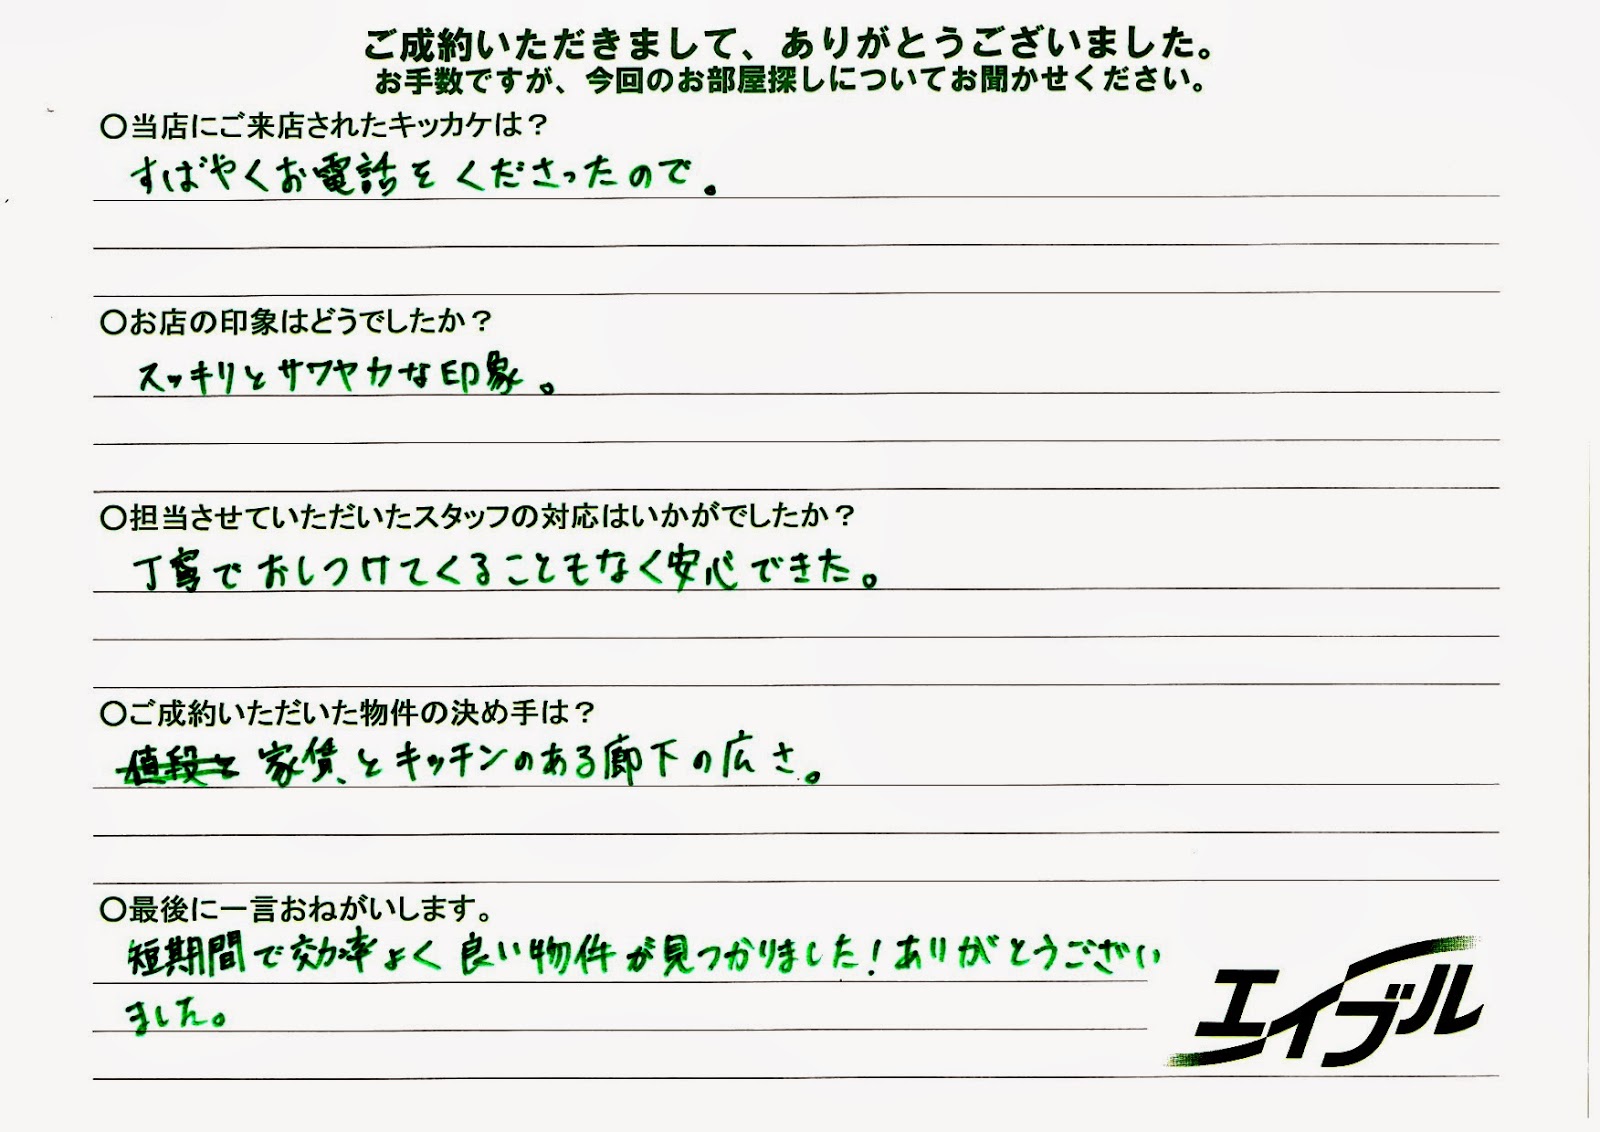 ご成約いただきまして、ありがとうございました。
お手数ですが、今回のお部屋探しについてお聞かせください。
〇当店にご来店されたキッカケは？
すばやくお電話をくださったので。
〇お店の印象はどうでしたか？
スッキリとサワヤカな印象。
〇担当させていただいたスタッフの対応はいかがでしたか？
丁寧でおしつけてくることもなく安心できた。
〇ご成約いただいた物件の決め手は？
値段と 家賃、とキッチンのある廊下の広さ。
〇最後に一言おねがいします。
短期間で効率よく良い物件が見つかりました！ありがとうござい
ました。
エイブル